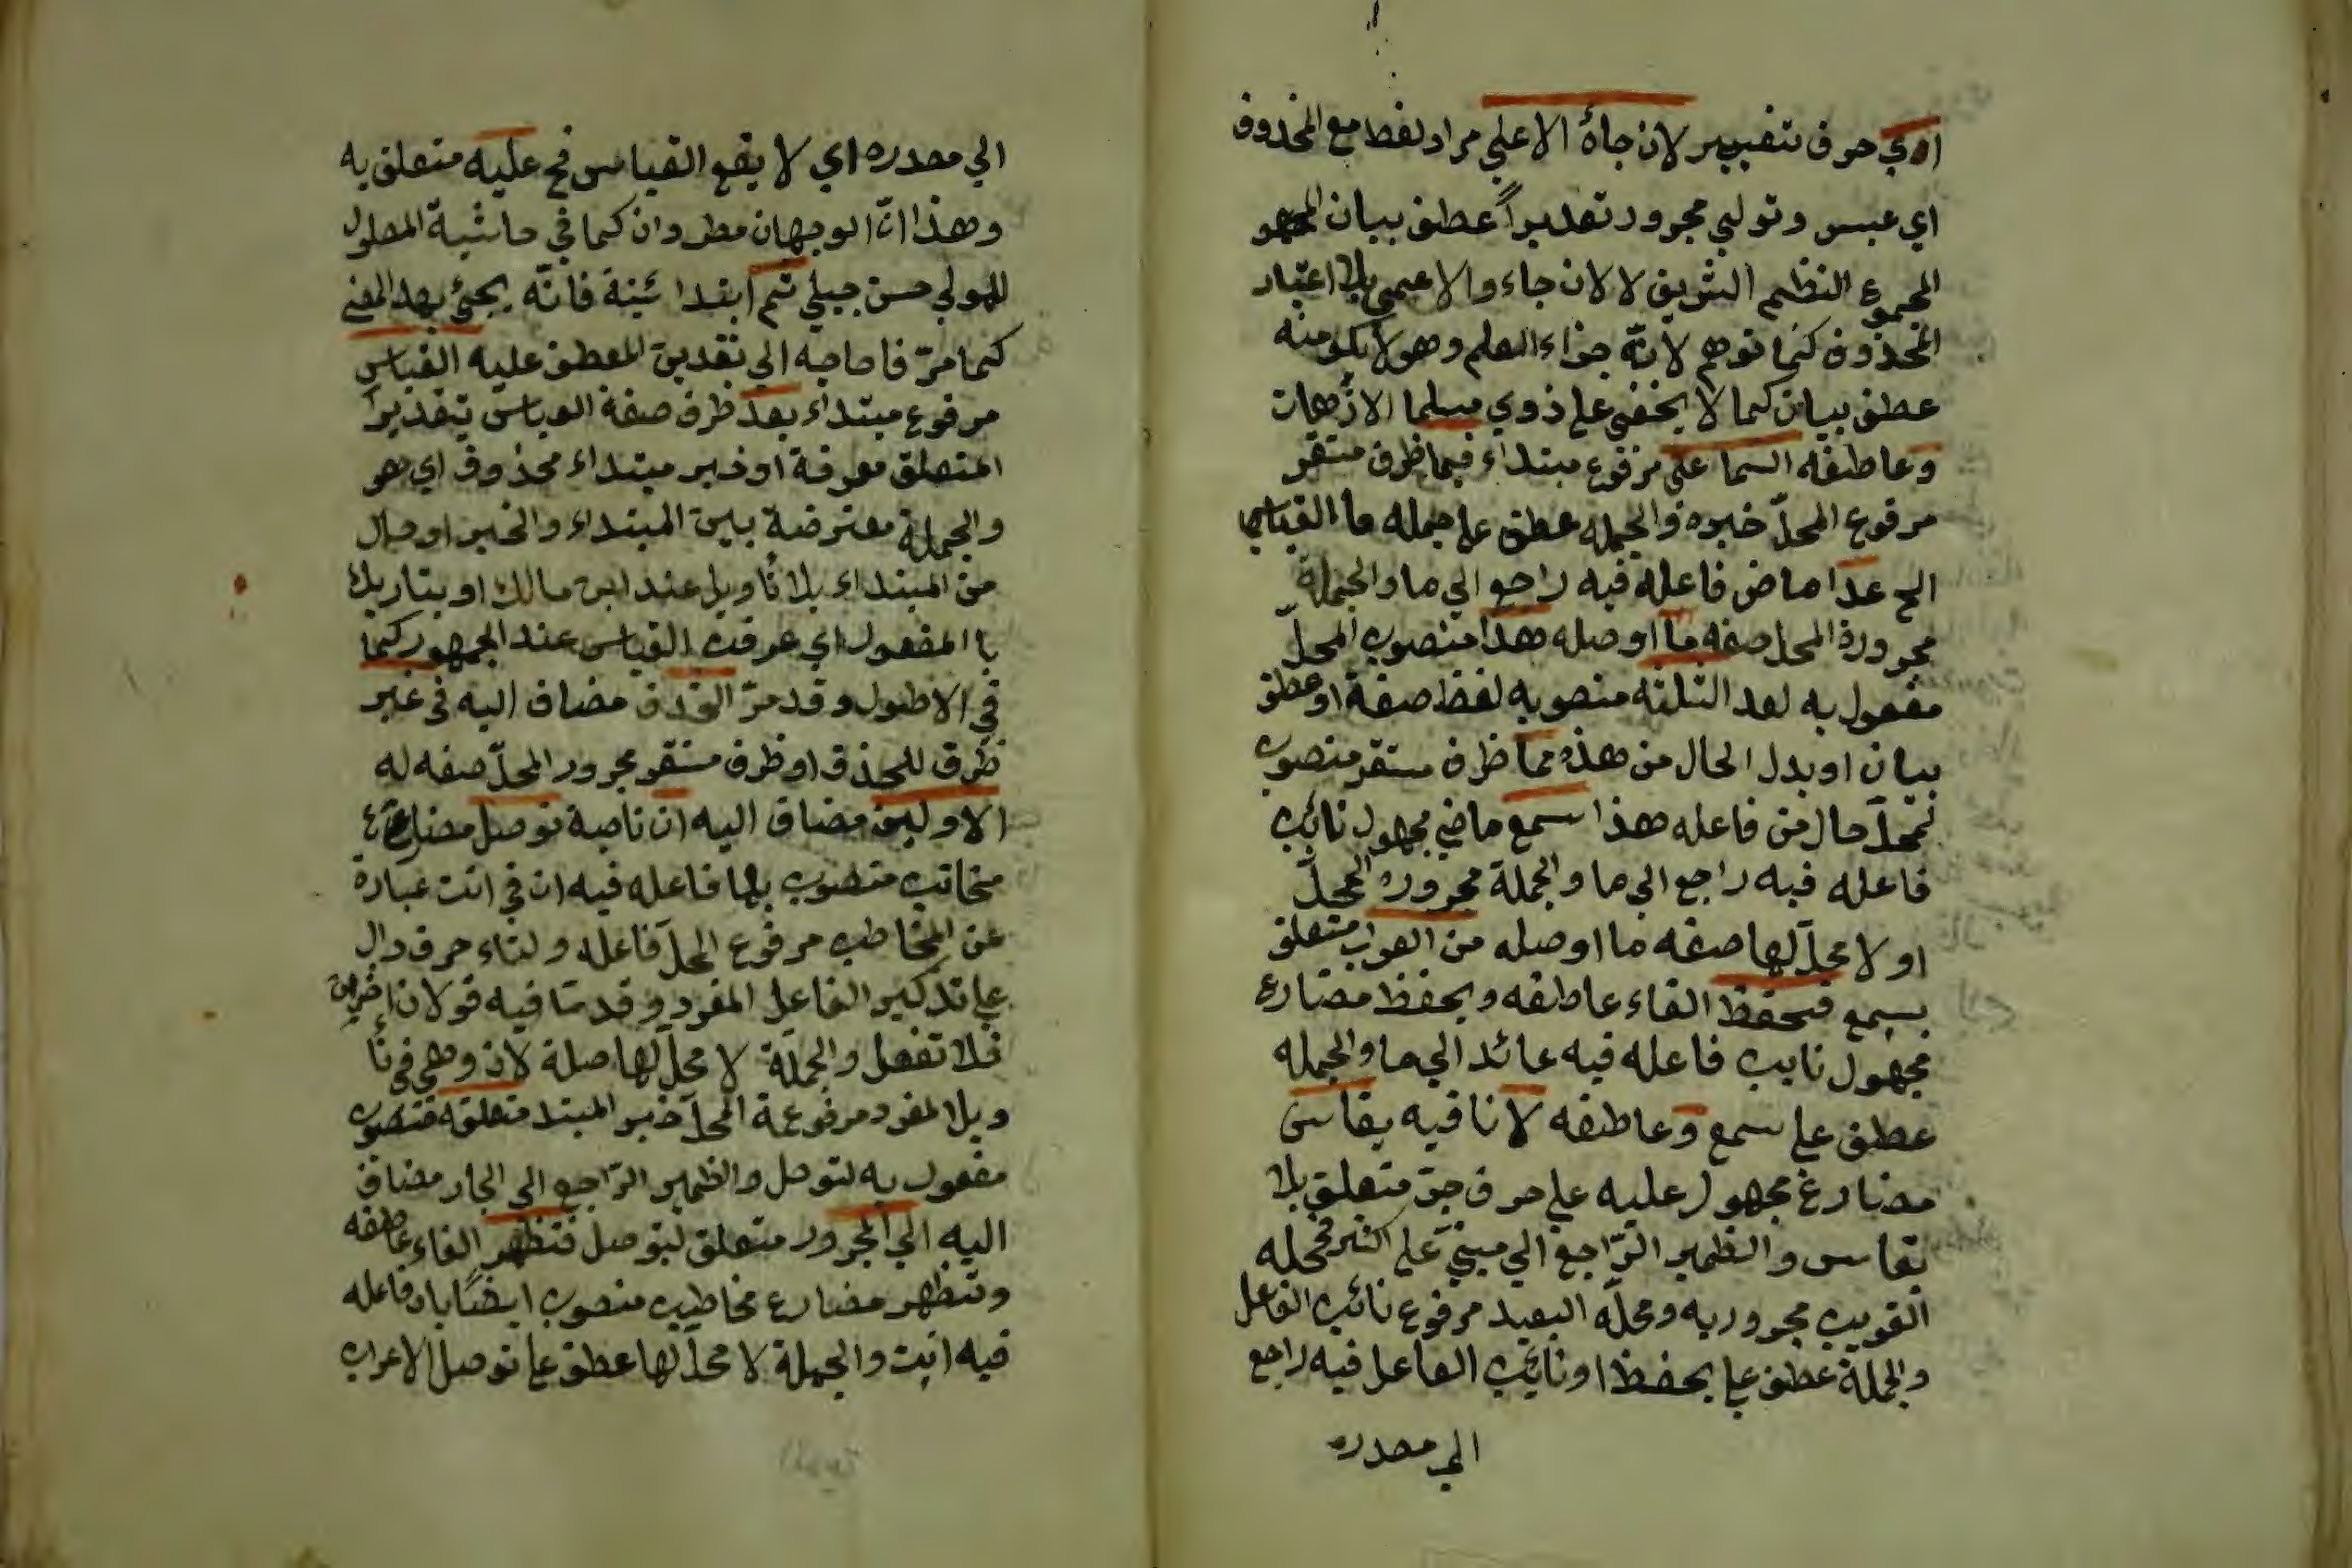 اي حرف تفسير لان جاءه الاعلي مراد لفظ مع المحذوف
اي عبس وتولي مجرور تقديراً عطف بيان
المجموع النظم الشريف لا لان جاء والاعمي بلا اعتبار
المحذوف كما توهم لانّه جزاء العلم وهو لا يكون منه
عطف بيان كما لا يخفي علي ذوي الاذهان
وعاطفه السماعي مرفوع مبتداء فيما ظرف مستقر
مرفوع المحلّ خبره والجمله عطف علي جمله ما القياسي
الخ عدا ماض فاعله فيه راجع الي ما والجملة
مجرورة المحل صفه ما او صله هذا منصوب المحلّ
مفعول به لعد الثلثه منصوبه لفظ صفة او عطف
بيان او بدل الحال من هذه مما ظرف مستقر منصوب
المحلّ حال من فاعله هذا سمع ماضي مجهول نائب
فاعله فيه راجع الي ما والجملة مجروره المحلّ
او لا محلّ لها صفه ما او صله من العرب متعلق
بسمع فيحفظ الفاء عاطفه ويحفظ مضارع
مجهول نايب فاعله فيه عائد الي ما والجمله
عطف علي سمع وعاطفه لا نافيه يقاس
مضارع مجهول عليه علي حرف جرّ متعلق بلا
يقاس والظمير الرّاجع الي مبنيّ علي الكسر فمحله
القريب مجرور به ومحلّه البعيد مرفوع نائب الفاعل
والجملة عطف علي يحفظ او نائب الفاعل فيه راجع
الي مصدره
الي مصدره اي لا يقع القياس فح عليه متعلق به
وهذا انّ الوجهان مطروان كما في حاشية المطول
للمولي حسن جبلي ثم ابتدا ئية فانّه يجئ بهذا المعني
كما مرّ فاحاجه الي تقدير المعطف عليه القياس
مرفوع مبتداء بعد ظرف صفه القياس بتقدير
المتعلق معرفة او خبر مبتداء محذوف اي هو
والجملة معترضة بين المبتداء والخبر او حال
من المبتداء بلا تأويل عند ابن مالك او بتاريك
با المفعول اي عرفت القياس عند الجمهور كما
في الاطول وقد مرّ الحذف مضاف اليه في غير
ظرف للحذف او ظرف مستقر مجرور المحلّ صفه له
الاولين مضاف اليه ان ناصبة توصل مضارع
مخاتب منصوب بها فاعله فيه ان في انت عبارة
عن المخاطب مرفوع المحلّ فاعله ولتاء حرف دال
علي تذكير الفاعل المفرد وقد متا فيه قولان اخران
فلا تغفل والجملة لا محلّ لها صلة لان وهي في تأ
ويل المفرد مرفوعة المحلّ خبر المبتد متعلقه منصوب
مفعول به لتوصل والظمير الرّاجع الي الجار مضاف
اليه الي المجرور متعلق لتوصل فتظهر الفاء عاطفه
وتظهر مضارع مخاطب منصوب ايضًا بان فاعله
فيه انت والجملة لا محلّ لها عطف علي توصل الاعراب